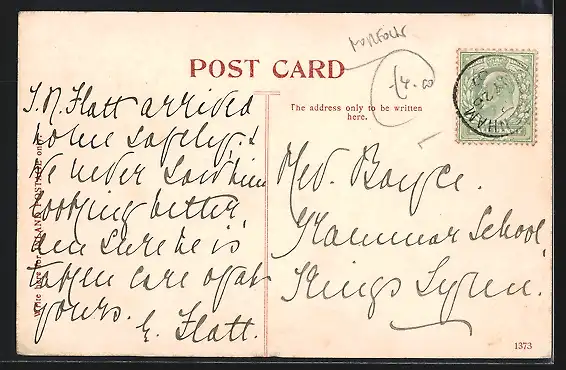 NORFOLK
POST CARD
14-00
The address only to be written
here.
Write here for INLAND POSTAGE only
J. N. Flatt arrived
home safely, &
we never saw him
looking better,
am sure he is
taken care of at
yours.
E. Flatt.
Rev. Boyce.
Grammar School,
Kings Lynn.
HAM
1373